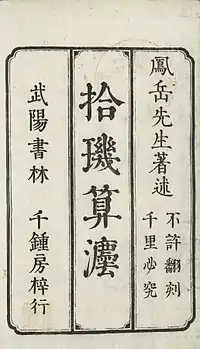 鳳岳先生著述
不許翻刻
千里必究
拾璣算瀍
武陽書林 千鍾房梓行